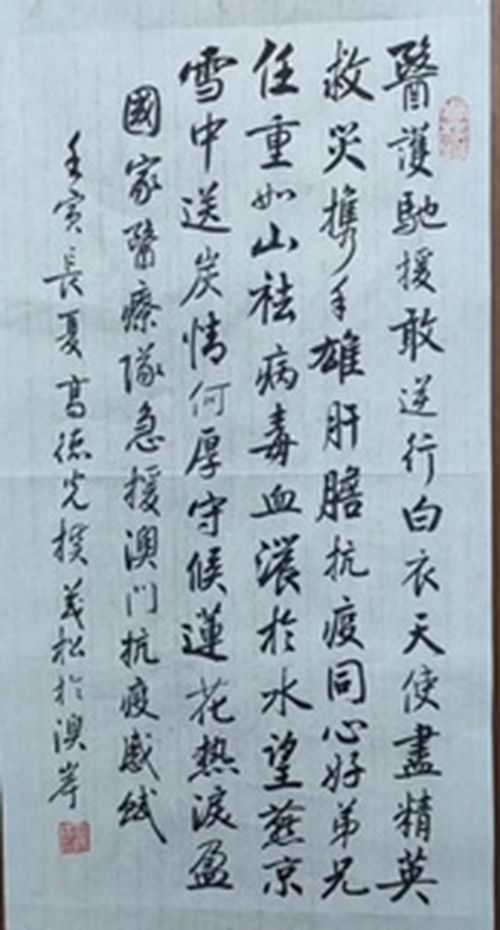 醫護馳援敢逆行白衣天使盡精英
救災攜手雄肝膽抗疫同心好弟兄
任重如山祛病毒血濃於水望燕京
雪中送炭情何厚守候蓮花熱淚盈
國家醫療隊急援澳門抗疫感賦
壬寅長夏高德光撰義松於澳岸